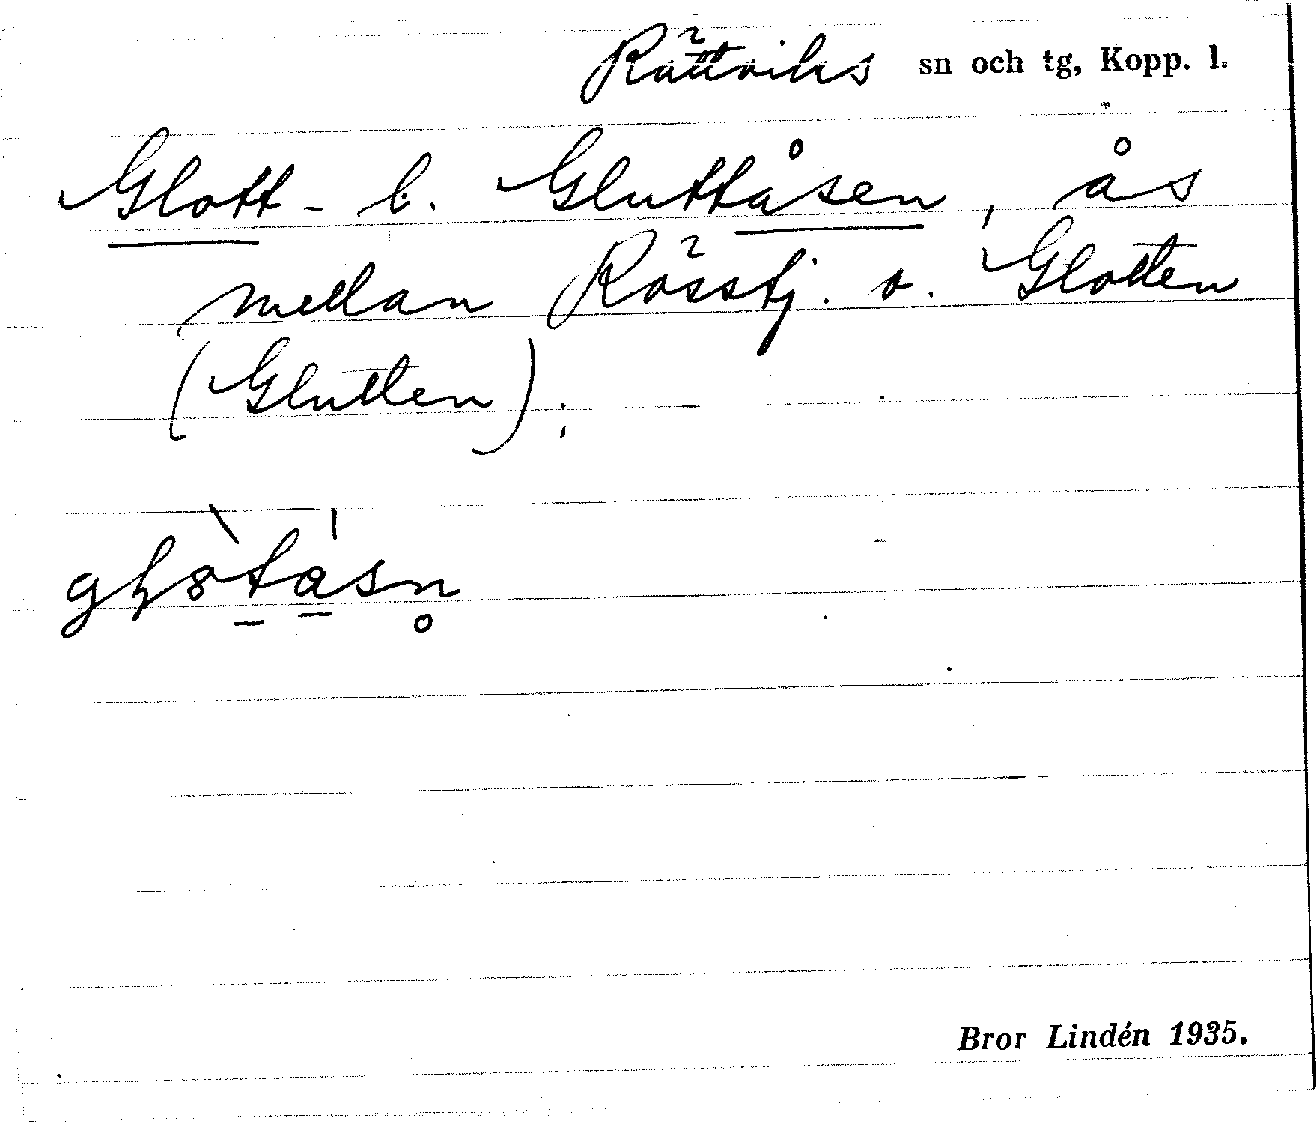 Rättviks sn och tg, Kopp. l.
Glott- l. Gluttåsen, ås
mellan Rösstj. o. Glotten
(Glutten);
Bror Lindén 1935.